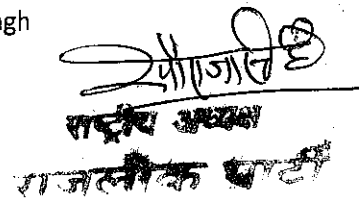 agh
राष्ट्रीय अध्यक्ष
राजलोक पार्टी